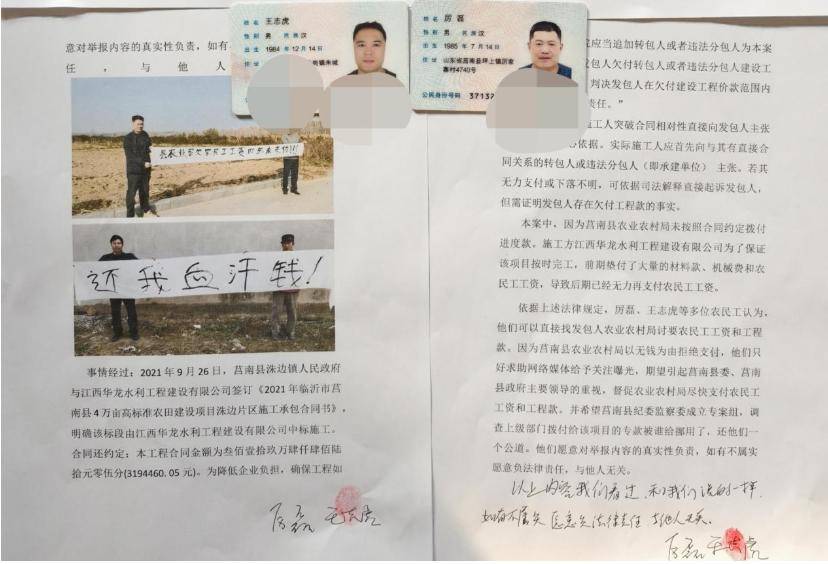 意对举报内容的真实性负责，如有
任，与他人
还我血汗钱！
事情经过：2021年9月26日，莒南县洙边镇人民政府
与江西华龙水利工程建设有限公司签订《2021年临沂市莒
南县4万亩高标准农田建设项目洙边片区施工承包合同书》，
明确该标段由江西华龙水利工程建设有限公司中标施工。
合同还约定：本工程合同金额为叁佰壹拾玖万肆仟肆佰陆
拾元零伍分(3194460.05元)。为降低企业负担，确保工程如
厉磊 王志虎
姓名 王志虎
性别 男 民族 汉
出生 1984年12月14日
住址
街镇朱城
公民身份号码
姓名 厉磊
性别 男 民族 汉
出生 1985年7月14日
住址 山东省莒南县坪上镇厉家
寨村4740号
公民身份号码 37132
院应当追加转包人或者违法分包人为本案
发包人欠付转包人或者违法分包人建设工
判决发包人在欠付建设工程价款范围内
责任。”
施工人突破合同相对性直接向发包人主张
依据。实际施工人应首先向与其有直接合
同关系的转包人或违法分包人（即承建单位）主张。若其
无力支付或下落不明，可依据司法解释直接起诉发包人，
但需证明发包人存在欠付工程款的事实。
本案中，因为莒南县农业农村局未按照合同约定拨付
进度款。施工方江西华龙水利工程建设有限公司为了保证
该项目按时完工，前期垫付了大量的材料款、机械费和农
民工工资，导致后期已经无力再支付农民工工资。
依据上述法律规定，厉磊、王志虎等多位农民工认为，
他们可以直接找发包人农业农村局讨要农民工工资和工程
款。因为莒南县农业农村局以无钱为由拒绝支付，他们只
好求助网络媒体给予关注曝光，期望引起莒南县委、莒南
县政府主要领导的重视，督促农业农村局尽快支付农民工
工资和工程款。并希望莒南县纪委监察委成立专案组，调
查上级部门拨付给该项目的专款被谁给挪用了，还他们一
个公道。他们愿意对举报内容的真实性负责，如有不属实
愿意负法律责任，与他人无关。
以上内容我们看过，和我们说的一样，
如有不属实 愿意负法律责任 与他人无关。
厉磊 王志虎